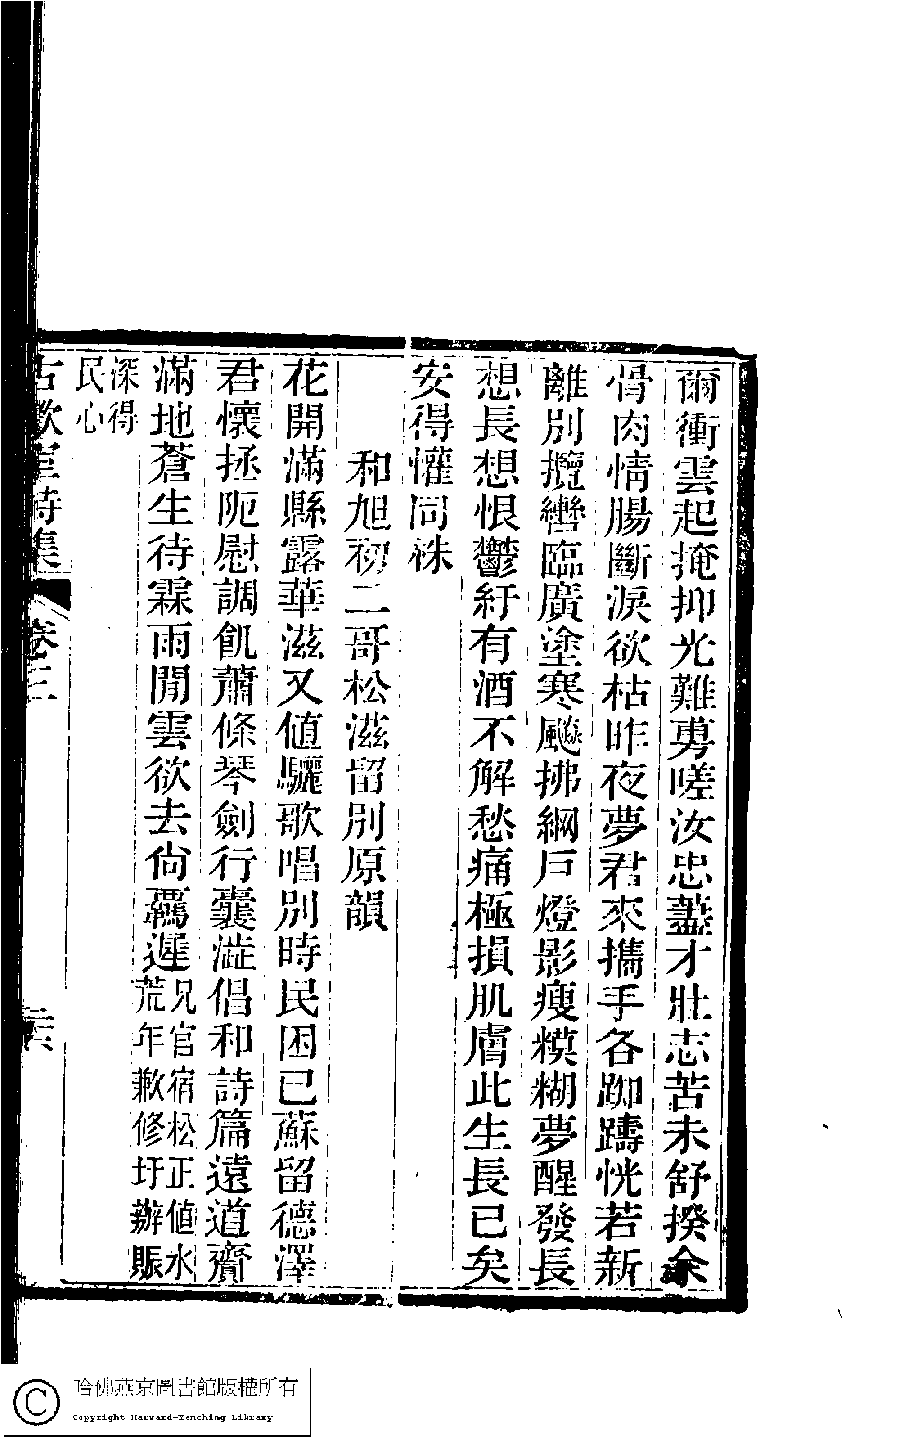 爾衝雲起掩抑光難旉嗟汝忠藎才壯志苦未舒揆余
骨肉情腸斷淚欲枯昨夜夢君來攜手各踟躊恍若新
離別攬轡臨廣塗寒颷拂綱戸燈影瘦糢糊夢醒發長
想長想恨鬱紆有酒不解愁痛極損肌膚此生長已矣
安得懽同袾
和旭初二哥松滋留別原韻
花開滿縣露華滋又値驪歌唱別時民困已蘇留德澤
君懷拯阨慰調飢蕭條琴劍行囊澁倡和詩篇遠道齎
滿地蒼生待霖雨閒雲欲去尙羈遲兄官宿松正値水
荒年歉修圩辦賑
深得
民心
古歡室詩集 卷三 二六
哈佛燕京圖書館版權所有
Copyright Harvard-Yenching Library